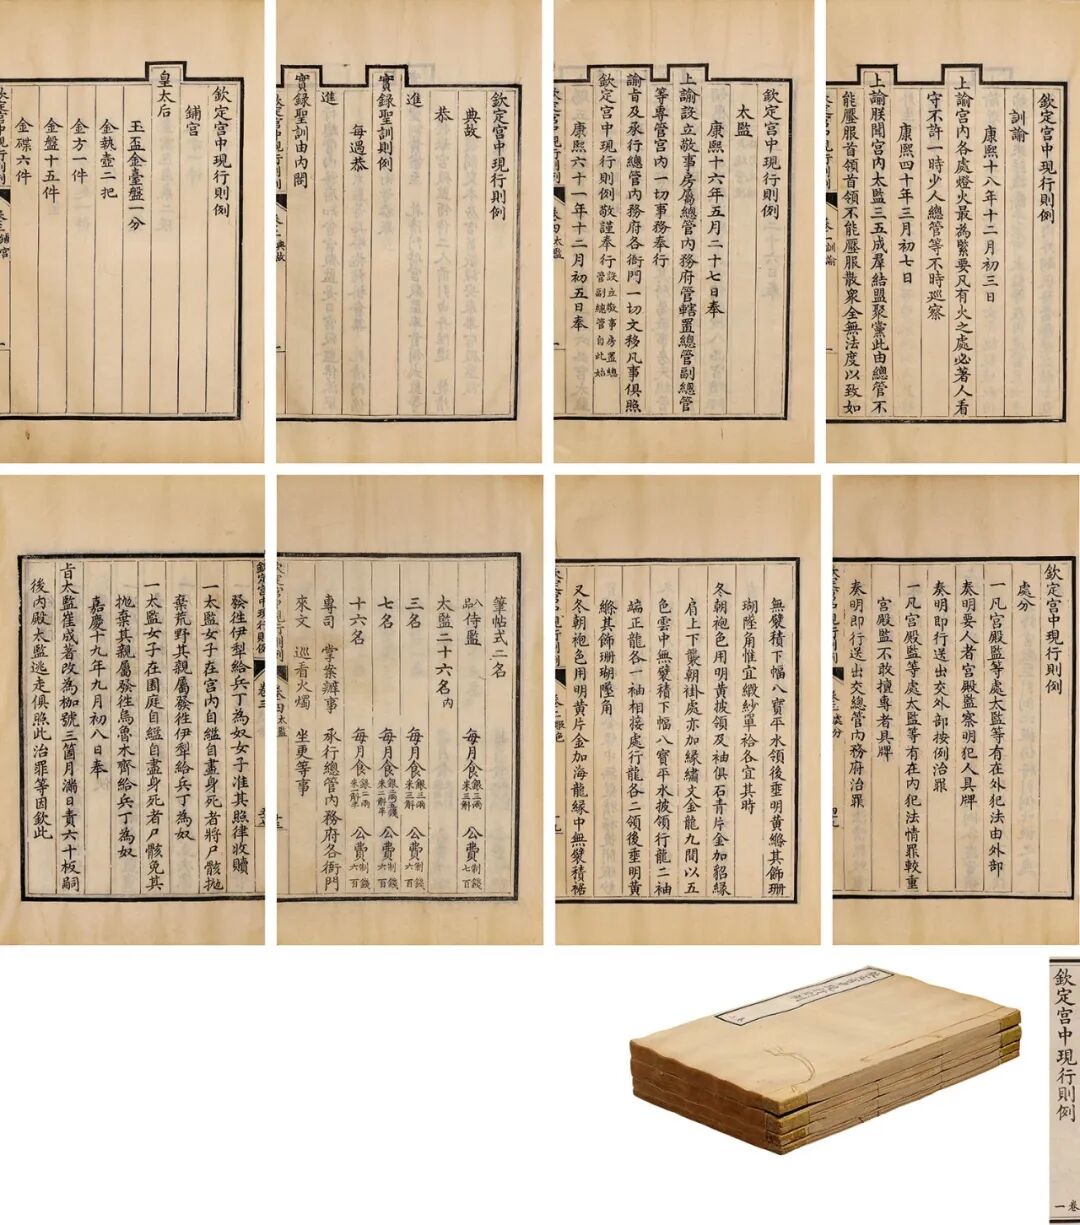 欽定宮中現行則例
訓諭
康熙十八年十二月初三日
上諭宮內各處燈火最為緊要凡有火之處必著人看
守不許一時少人總管等不時巡察
康熙四十年三月初七日
上諭朕聞宮內太監三五成羣結盟聚黨此由總管不
能壓服首領首領不能壓服散衆全無法度以致如
欽定宮中現行則例
太監
康熙十六年五月二十七日奉
上諭設立敬事房屬總管內務府管轄置總管副總管
等專管宮內一切事務奉行
諭旨及承行總管內務府各衙門一切文移凡事俱照
欽定宮中現行則例敬謹奉行設立敬事房置總管副總管自此始
康熙六十一年十二月初五日奉
卷四太監
欽定宮中現行則例
典故
恭
進
實錄聖訓則例
每遇恭
進
實錄聖訓由內閣
欽定宮中現行則例
鋪宮
皇太后
玉盃金臺盤一分
金執壺二把
金方一件
金盤十五件
金碟六件
欽定宮中現行則例
處分
一凡宮殿監等處太監等有在外犯法由外部
奏明要人者宮殿監察明犯人具牌
奏明即行送出交外部按例治罪
一凡宮殿監等處太監等有在內犯法情罪較重
宮殿監不敢擅專者具牌
奏明即行送出交總管內務府治罪
無襞積下幅八寶平水領後垂明黃縧其飾珊
瑚墜角惟宜緞紗單袷各宜其時
冬朝袍色用明黃披領及袖俱石青片金加貂緣
肩上下襲朝褂處亦加緣繡文金龍九間以五
色雲中無襞積下幅八寶平水披領行龍二袖
端正龍各一袖相接處行龍各二領後垂明黃
縧其飾珊瑚墜角
又冬朝袍色用明黃片金加海龍緣中無襞積裾
筆帖式二名
八品侍監 每月食銀三兩米三斛 公費制錢七百
太監二十六名內
三名 每月食銀三兩米三斛 公費制錢六百
七名 每月食銀二兩五錢米二斛半 公費制錢六百
十六名 每月食銀二兩米一斛半 公費制錢六百
專司 掌案辦事 承行總管內務府各衙門
來文 巡看火燭 坐更等事
欽定宮中現行則例 卷三
發徃伊犁給兵丁為奴女子准其照律收贖
一太監女子在宮內自縊自盡身死者將尸骸拋
棄荒野其親屬發徃伊犁給兵丁為奴
一太監女子在園庭自縊自盡身死者尸骸免其
拋棄其親屬發徃烏魯木齊給兵丁為奴
嘉慶十九年九月初八日奉
旨太監崔成著改為枷號三箇月滿日責六十板嗣
後內殿太監逃走俱照此治罪等因欽此
欽定宮中現行則例
卷一